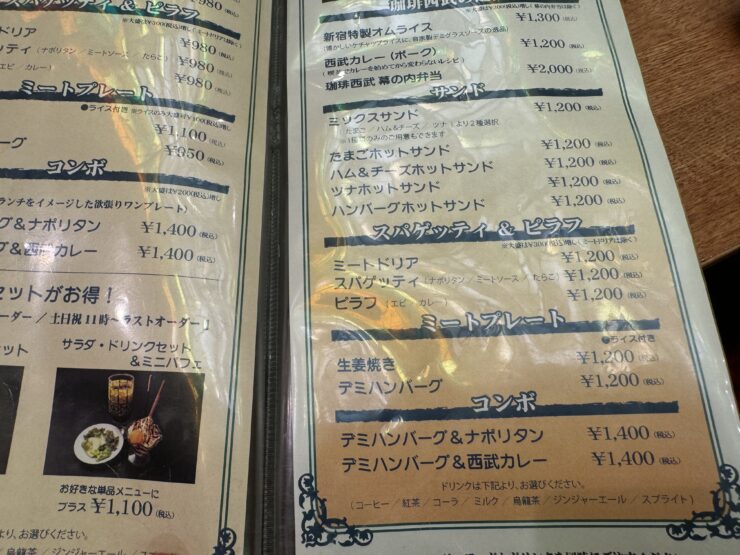 スパゲッティ & ピラフ
ドリア ¥980(税込)
ゲッティ(ナポリタン / ミートソース / たらこ) ¥980(税込)
(エビ / カレー) ¥980(税込)
ミートプレート
●ライス付き ※ライスのみ大盛は¥100(税込)増し
¥1,100(税込)
ーグ ¥950(税込)
コンボ
※大盛は¥200(税込)増し
ランチをイメージした欲張りワンプレート)
グ&ナポリタン ¥1,400(税込)
グ&西武カレー ¥1,400(税込)
セットがお得!
ーダー / 土日祝11時〜ラストオーダー】
ット
サラダ・ドリンクセット
&ミニパフェ
お好きな単品メニューに
プラス ¥1,100(税込)
より、お選びください。
/ 烏龍茶 / ジンジャーエール /
¥1,300(税込)
新宿特製オムライス
(懐かしいケチャップライスに、自家製デミグラスソースの逸品)
西武カレー(ポーク) ¥1,200(税込)
(喫茶でカレーを始めてから変わらないレシピ)
珈琲西武 幕の内弁当 ¥2,000(税込)
サンド
ミックスサンド ¥1,200(税込)
(たまご / ハム&チーズ / ツナ)より2種選択
たまごホットサンド ¥1,200(税込)
ハム&チーズホットサンド ¥1,200(税込)
ツナホットサンド ¥1,200(税込)
ハンバーグホットサンド ¥1,200(税込)
スパゲッティ & ピラフ
※大盛は¥300(税込)増し(ミートドリアは除く)
ミートドリア ¥1,200(税込)
スパゲッティ(ナポリタン / ミートソース / たらこ) ¥1,200(税込)
ピラフ(エビ / カレー) ¥1,200(税込)
ミートプレート
●ライス付き
生姜焼き ¥1,200(税込)
デミハンバーグ ¥1,200(税込)
コンボ
デミハンバーグ&ナポリタン ¥1,400(税込)
デミハンバーグ&西武カレー ¥1,400(税込)
ドリンクは下記より、お選びください。
(コーヒー / 紅茶 / コーラ / ミルク / 烏龍茶 / ジンジャーエール / スプライト)